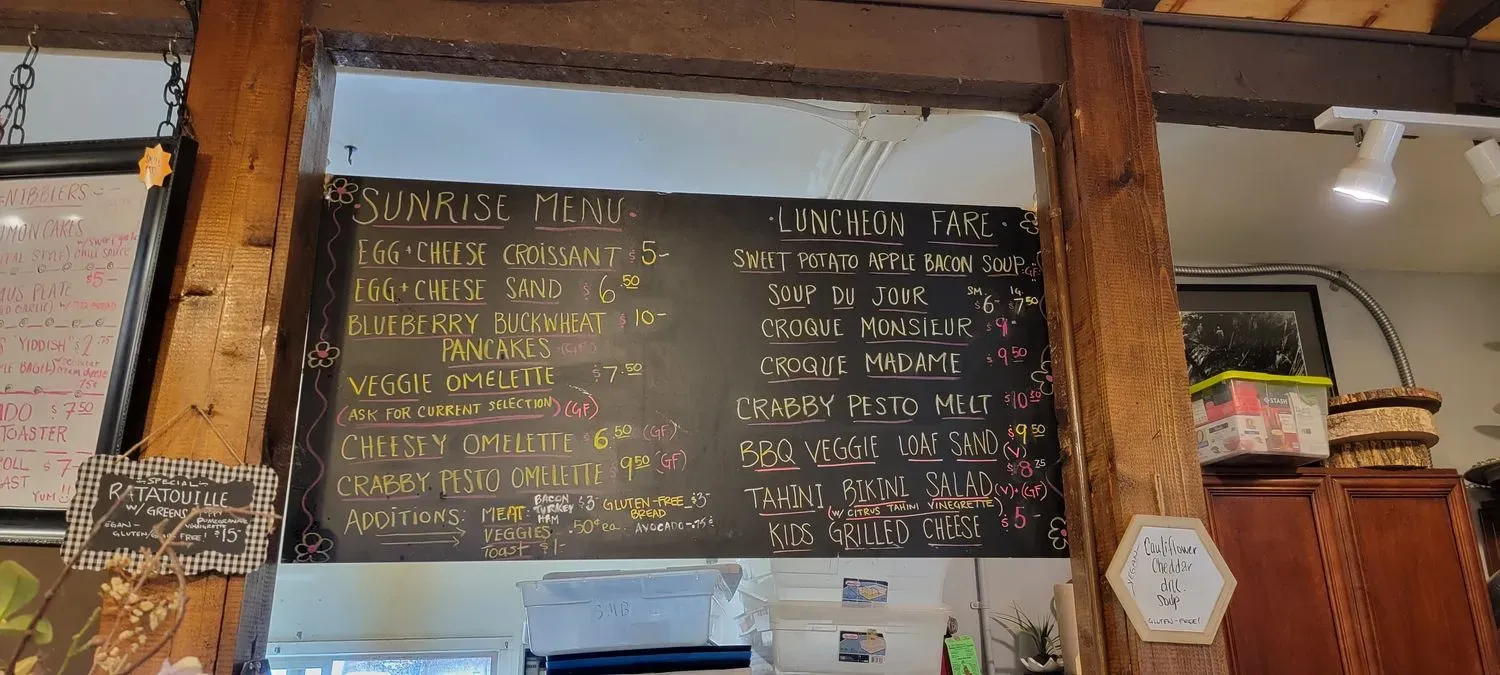 NIBBLERS
MON CAKES
STYLE)
CHILI SAUCE
$5-
US PLATE
GARLIC) W/
"YIDDISH" $2.75
BAGEL)
.75¢
DO $7.50
TOASTER
OLL $7-
AST YUM!!
-SPECIAL-
RATATOUILLE
W/ GREENS
POMEGRANATE
VINAIGRETTE
$15-
SUNRISE MENU
EGG+CHEESE CROISSANT $5-
EGG+CHEESE SAND $6.50
BLUEBERRY BUCKWHEAT $10-
PANCAKES (GF)
VEGGIE OMELETTE $7.50
(ASK FOR CURRENT SELECTION) (GF)
CHEESEY OMELETTE $6.50 (GF)
CRABBY PESTO OMELETTE $9.50 (GF)
ADDITIONS: MEAT: BACON TURKEY HAM $3- GLUTEN-FREE BREAD $3-
VEGGIES .50¢ ea. AVOCADO-.75¢
TOAST $1-
LUNCHEON FARE
SWEET POTATO APPLE BACON SOUP (GF)
SM. LG.
SOUP DU JOUR $6- $7.50
CROQUE MONSIEUR $9-
CROQUE MADAME $9.50
CRABBY PESTO MELT $10.50
BBQ VEGGIE LOAF SAND (V) $9.50
TAHINI BIKINI SALAD (V)+(GF) $8.25
(W/ CITRUS TAHINI VINEGRETTE)
KIDS GRILLED CHEESE $5-
STASH
SMB
VEGAN
Cauliflower
Cheddar
dill
Soup
GLUTEN-FREE!